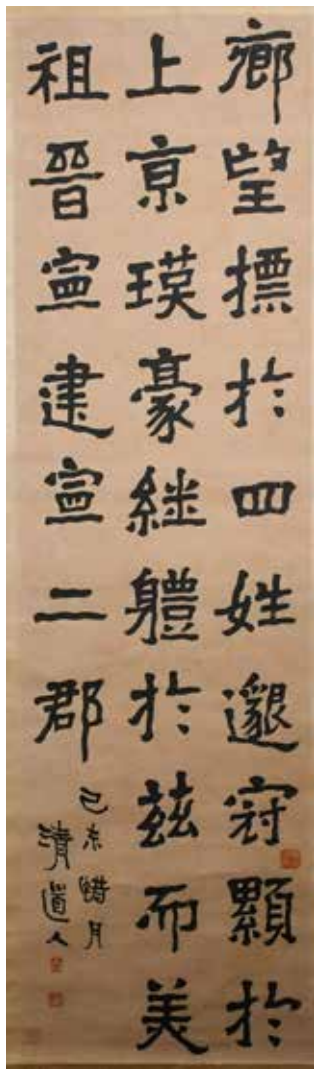 鄉望摽於四姓邈冠顯於
上京瑛豪継軆於茲而美
祖晉寍建寍二郡
己未蜡月
清道人